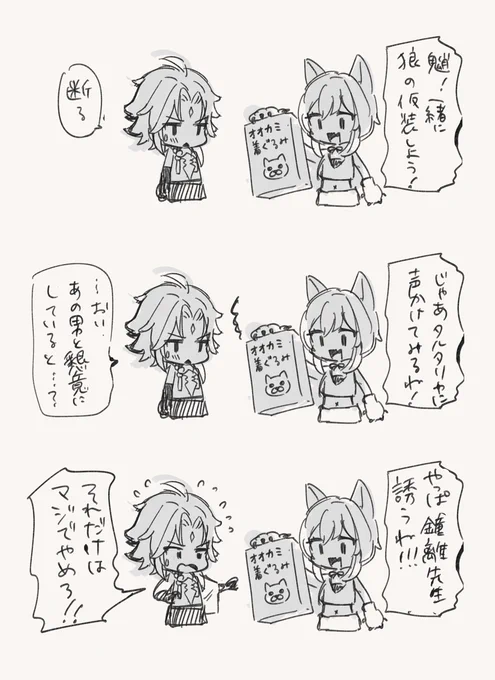 魈！一緒に
狼の仮装しよう！
断る
オオカミ
着ぐるみ
じゃあタルタリヤに
声かけてみるわ！
オオカミ
着ぐるみ
…おい
あの男と懇意に
していると…？
やっぱ鐘離先生
誘うわ!!!
オオカミ
着ぐるみ
それだけは
マジでやめろ!!